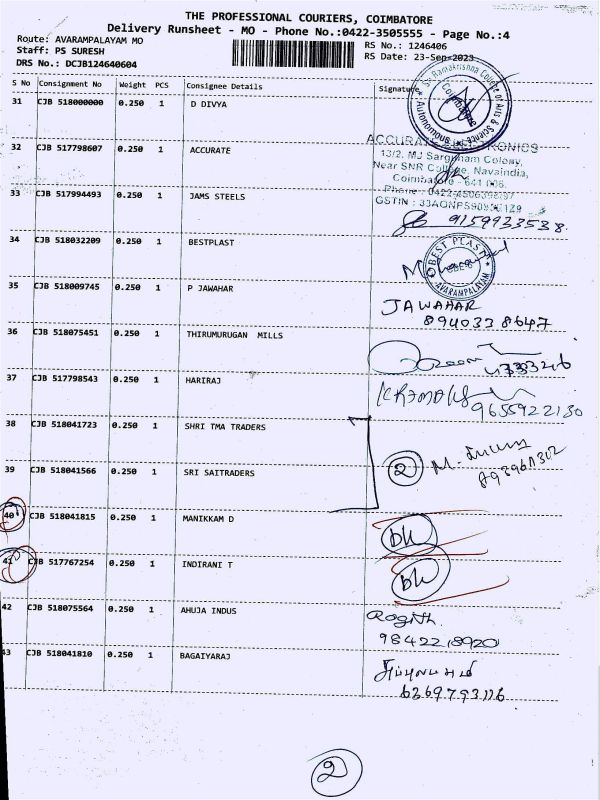 THE PROFESSIONAL COURIERS, COIMBATORE
Delivery Runsheet - MO - Phone No.:0422-3505555 - Page No.:4
Route: AVARAMPALAYAM MO
RS No.: 1246406
Staff: PS SURESH
RS Date: 23-Sep-2023
DRS No.: DCJB124640604
S No Consignment No Weight PCS Consignee Details Signature
31 CJB 518000000 0.250 1 D DIVYA
Sri Ramakrishna College of Arts & Science
Autonomous
Coimbatore
32 CJB 517798607 0.250 1 ACCURATE
ACCURATE ELECTRONICS
13/2, MJ Sarguham Colony,
Near SNR College, Navaindia,
Coimbatore - 641 006.
33 CJB 517994493 0.250 1 JAMS STEELS
9159933538
34 CJB 518032209 0.250 1 BESTPLAST
BEST PLAST
AVARAMPALAYAM
35 CJB 518009745 0.250 1 P JAWAHAR
JAWAHAR
8940338647
36 CJB 518075451 0.250 1 THIRUMURUGAN MILLS
37 CJB 517798543 0.250 1 HARIRAJ
9655922130
38 CJB 518041723 0.250 1 SHRI TMA TRADERS
2 M.
39 CJB 518041566 0.250 1 SRI SAITRADERS
40 CJB 518041815 0.250 1 MANIKKAM D
DH
41 CJB 517767254 0.250 1 INDIRANI T
DH
42 CJB 518075564 0.250 1 AHUJA INDUS
Ragith
9842218920
43 CJB 518041810 0.250 1 BAGAIYARAJ
6369793116
2